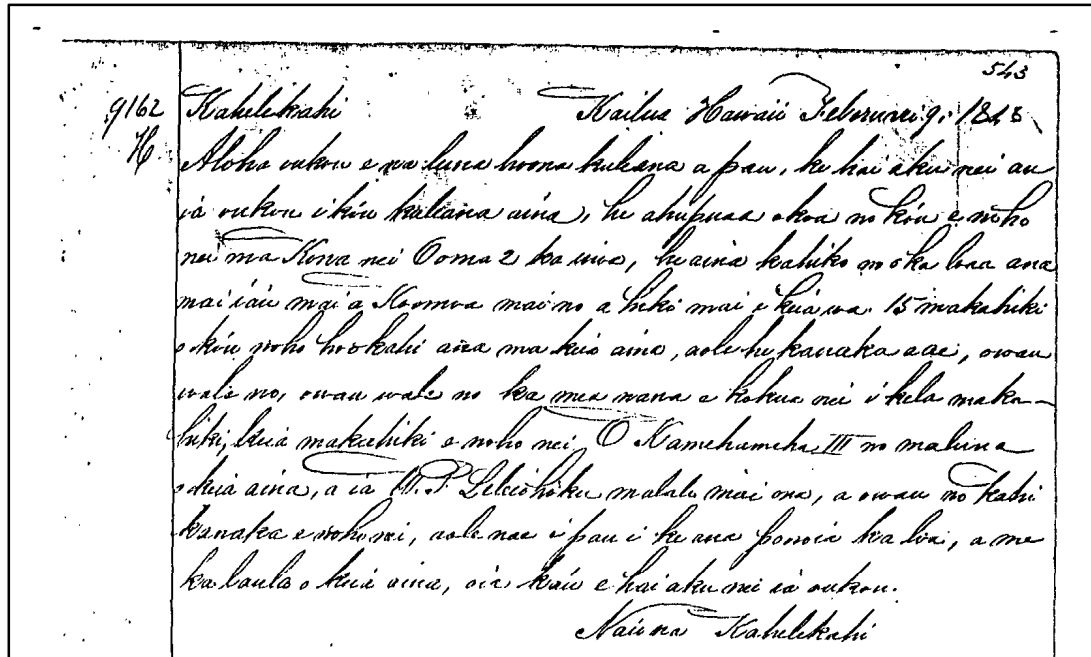 543
9162 Kahelekahi Kailua Hawaii Feberuari 9, 1848
H Aloha oukou e na luna hoona kuleana a pau, ke hai aku nei au
ia oukou i kou kuleana aina, he ahupuaa okoa no kou e noho
nei ma Kona nei Ooma 2 ka inoa, he aina kahiko no o ka loaa ana
mai iau mai a Koomoa mai no a hiki mai i keia wa 15 makahiki
o kou noho hookahi ana ma keia aina, aole he kanaka aae, owau
wale no, owau wale no ka mea nana e kokua nei i kela maka-
hiki, keia makahiki e noho nei, O Kamehameha III no maluna
o keia aina, a ia W. P. Leleiohoku malalo mai ona, a owau no kahi
kanaka e noho nei, aole nae i pau i ke ana ponoia ka loa, a me
ka laula o keia aina, oia kau e hai aku nei ia oukou.
Na'u na Kahelekahi